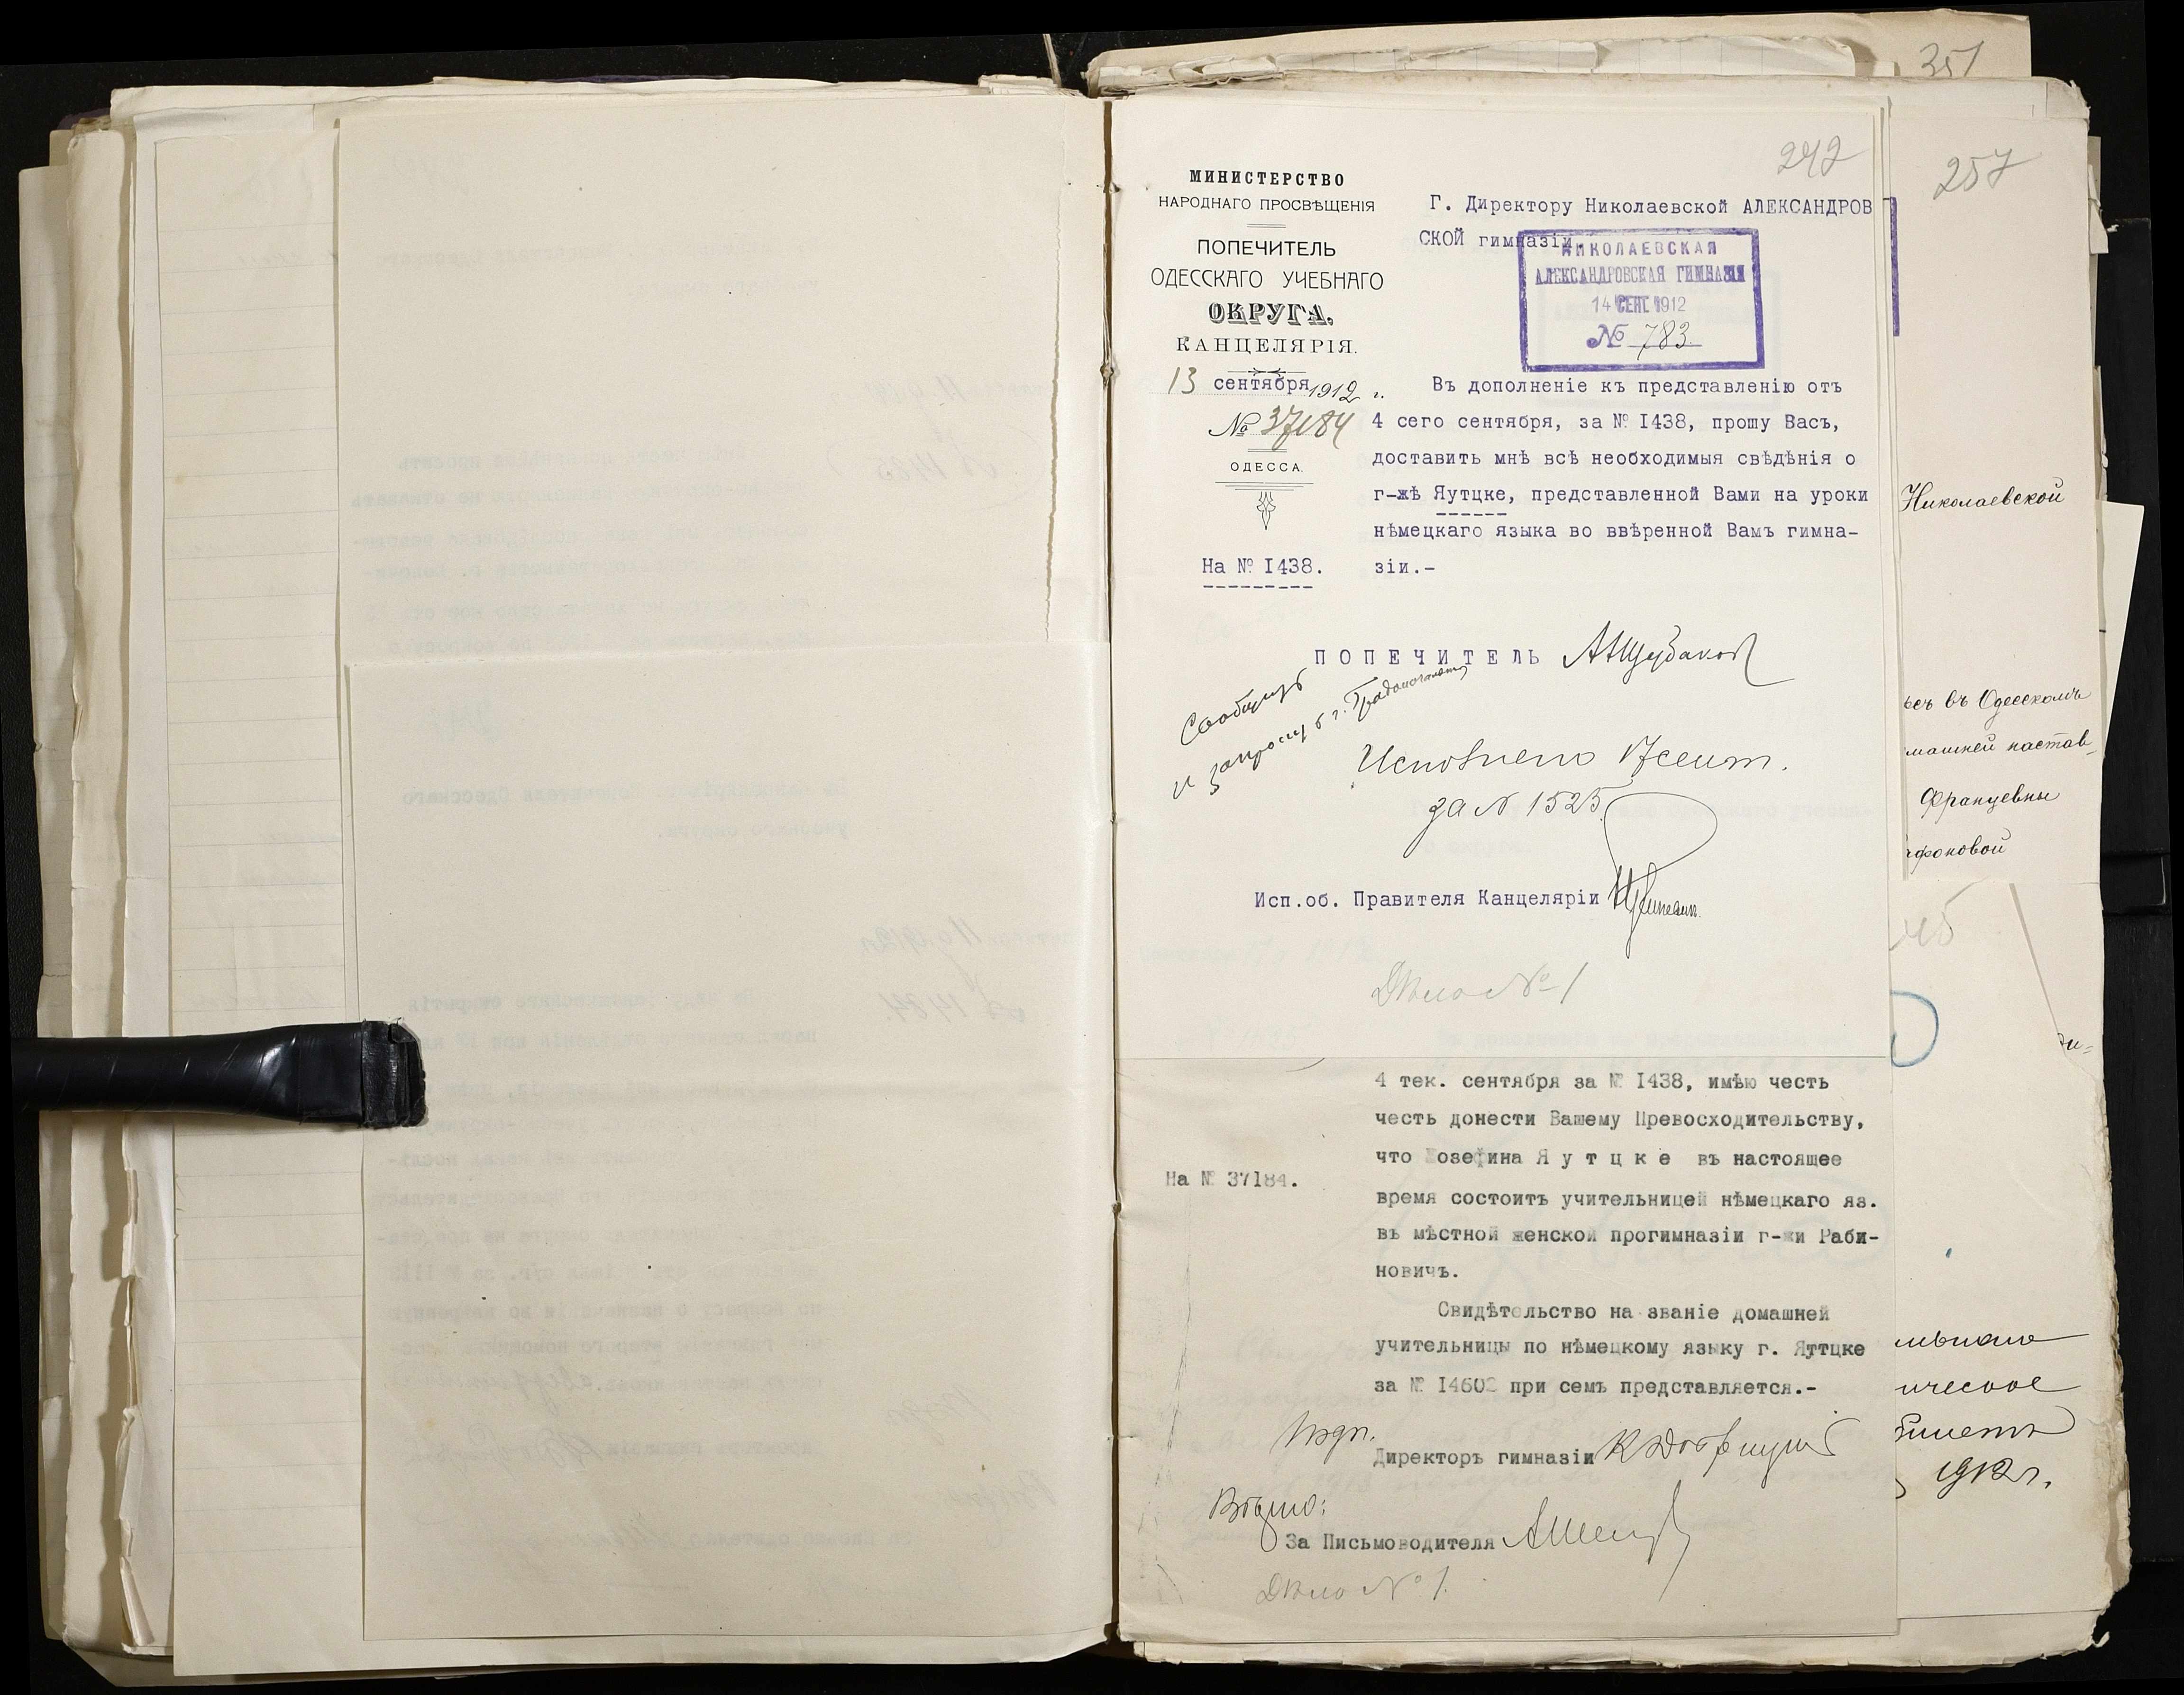 351
242
257
МИНИСТЕРСТВО
НАРОДНАГО ПРОСВѢЩЕНІЯ
ПОПЕЧИТЕЛЬ
ОДЕССКАГО УЧЕБНАГО
ОКРУГА,
КАНЦЕЛЯРІЯ.
13 сентября 1912 г.
№ 37184
ОДЕССА.
На № I438.
Г. Директору Николаевской АЛЕКСАНДРОВ
СКОЙ гимназіи.
НИКОЛАЕВСКАЯ
АЛЕКСАНДРОВСКАЯ ГИМНАЗІЯ
14 СЕНТ 1912
№ 783.
Въ дополненіе къ представленію отъ
4 сего сентября, за № I438, прошу Васъ,
доставить мнѣ всѣ необходимыя свѣдѣнія о
г-жѣ Яутцке, представленной Вами на уроки
нѣмецкаго языка во ввѣренной Вамъ гимна-
зіи.-
ПОПЕЧИТЕЛЬ
Сообщить
и запросить г. Градоначальн
Исполнено 17 сент.
за № 1525
Исп.об. Правителя Канцеляріи
Дѣло № 1
4 тек. сентября за № I438, имѣю честь
честь донести Вашему Превосходительству,
что Жозефина Яутцке въ настоящее
время состоитъ учительницей нѣмецкаго яз.
въ мѣстной женской прогимназіи г-жи Раби-
новичъ.
На № 37184.
Свидѣтельство на званіе домашней
учительницы по нѣмецкому языку г. Яуттцке
за № I4602 при семъ представляется.-
Подп.
Директоръ гимназіи
Вѣрно:
За Письмоводителя
Дѣло № 1.
Николаевской
въ Одесскомъ
машней настав-
Францевны
афоновой
1912 г.